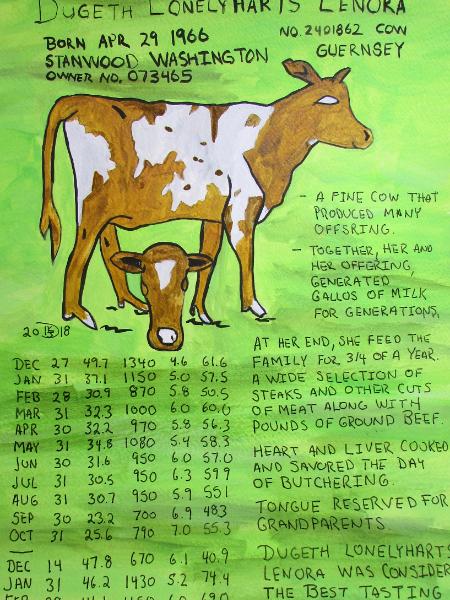 DUGETH LONELYHARTS LENORA
BORN APR 29 1966
STANWOOD WASHINGTON
OWNER NO. 073465
NO. 2401862 COW
GUERNSEY
- A FINE COW THAT
PRODUCED MANY
OFFSRING.
- TOGETHER, HER AND
HER OFFERING,
GENERATED
GALLOS OF MILK
FOR GENERATIONS,
20 18
AT HER END, SHE FEED THE
FAMILY FOR 3/4 OF A YEAR.
A WIDE SELECTION OF
STEAKS AND OTHER CUTS
OF MEAT ALONG WITH
POUNDS OF GROUND BEEF.
HEART AND LIVER COOKED
AND SAVORED THE DAY
OF BUTCHERING.
TONGUE RESERVED FOR
GRANDPARENTS
DUGETH LONELYHARTS
LENORA WAS CONSIDER
THE BEST TASTING
DEC 27 49.7 1340 4.6 61.6
JAN 31 37.1 1150 5.0 57.5
FEB 28 30.9 870 5.8 50.5
MAR 31 32.3 1000 6.0 60.0
APR 30 32.2 970 5.8 56.3
MAY 31 34.8 1080 5.4 58.3
JUN 30 31.6 950 6.0 57.0
JUL 31 30.5 950 6.3 599
AUG 31 30.7 950 5.9 551
SEP 30 23.2 700 6.9 483
OCT 31 25.6 790 7.0 55.3
DEC 14 47.8 670 6.1 40.9
JAN 31 46.2 1430 5.2 74.4